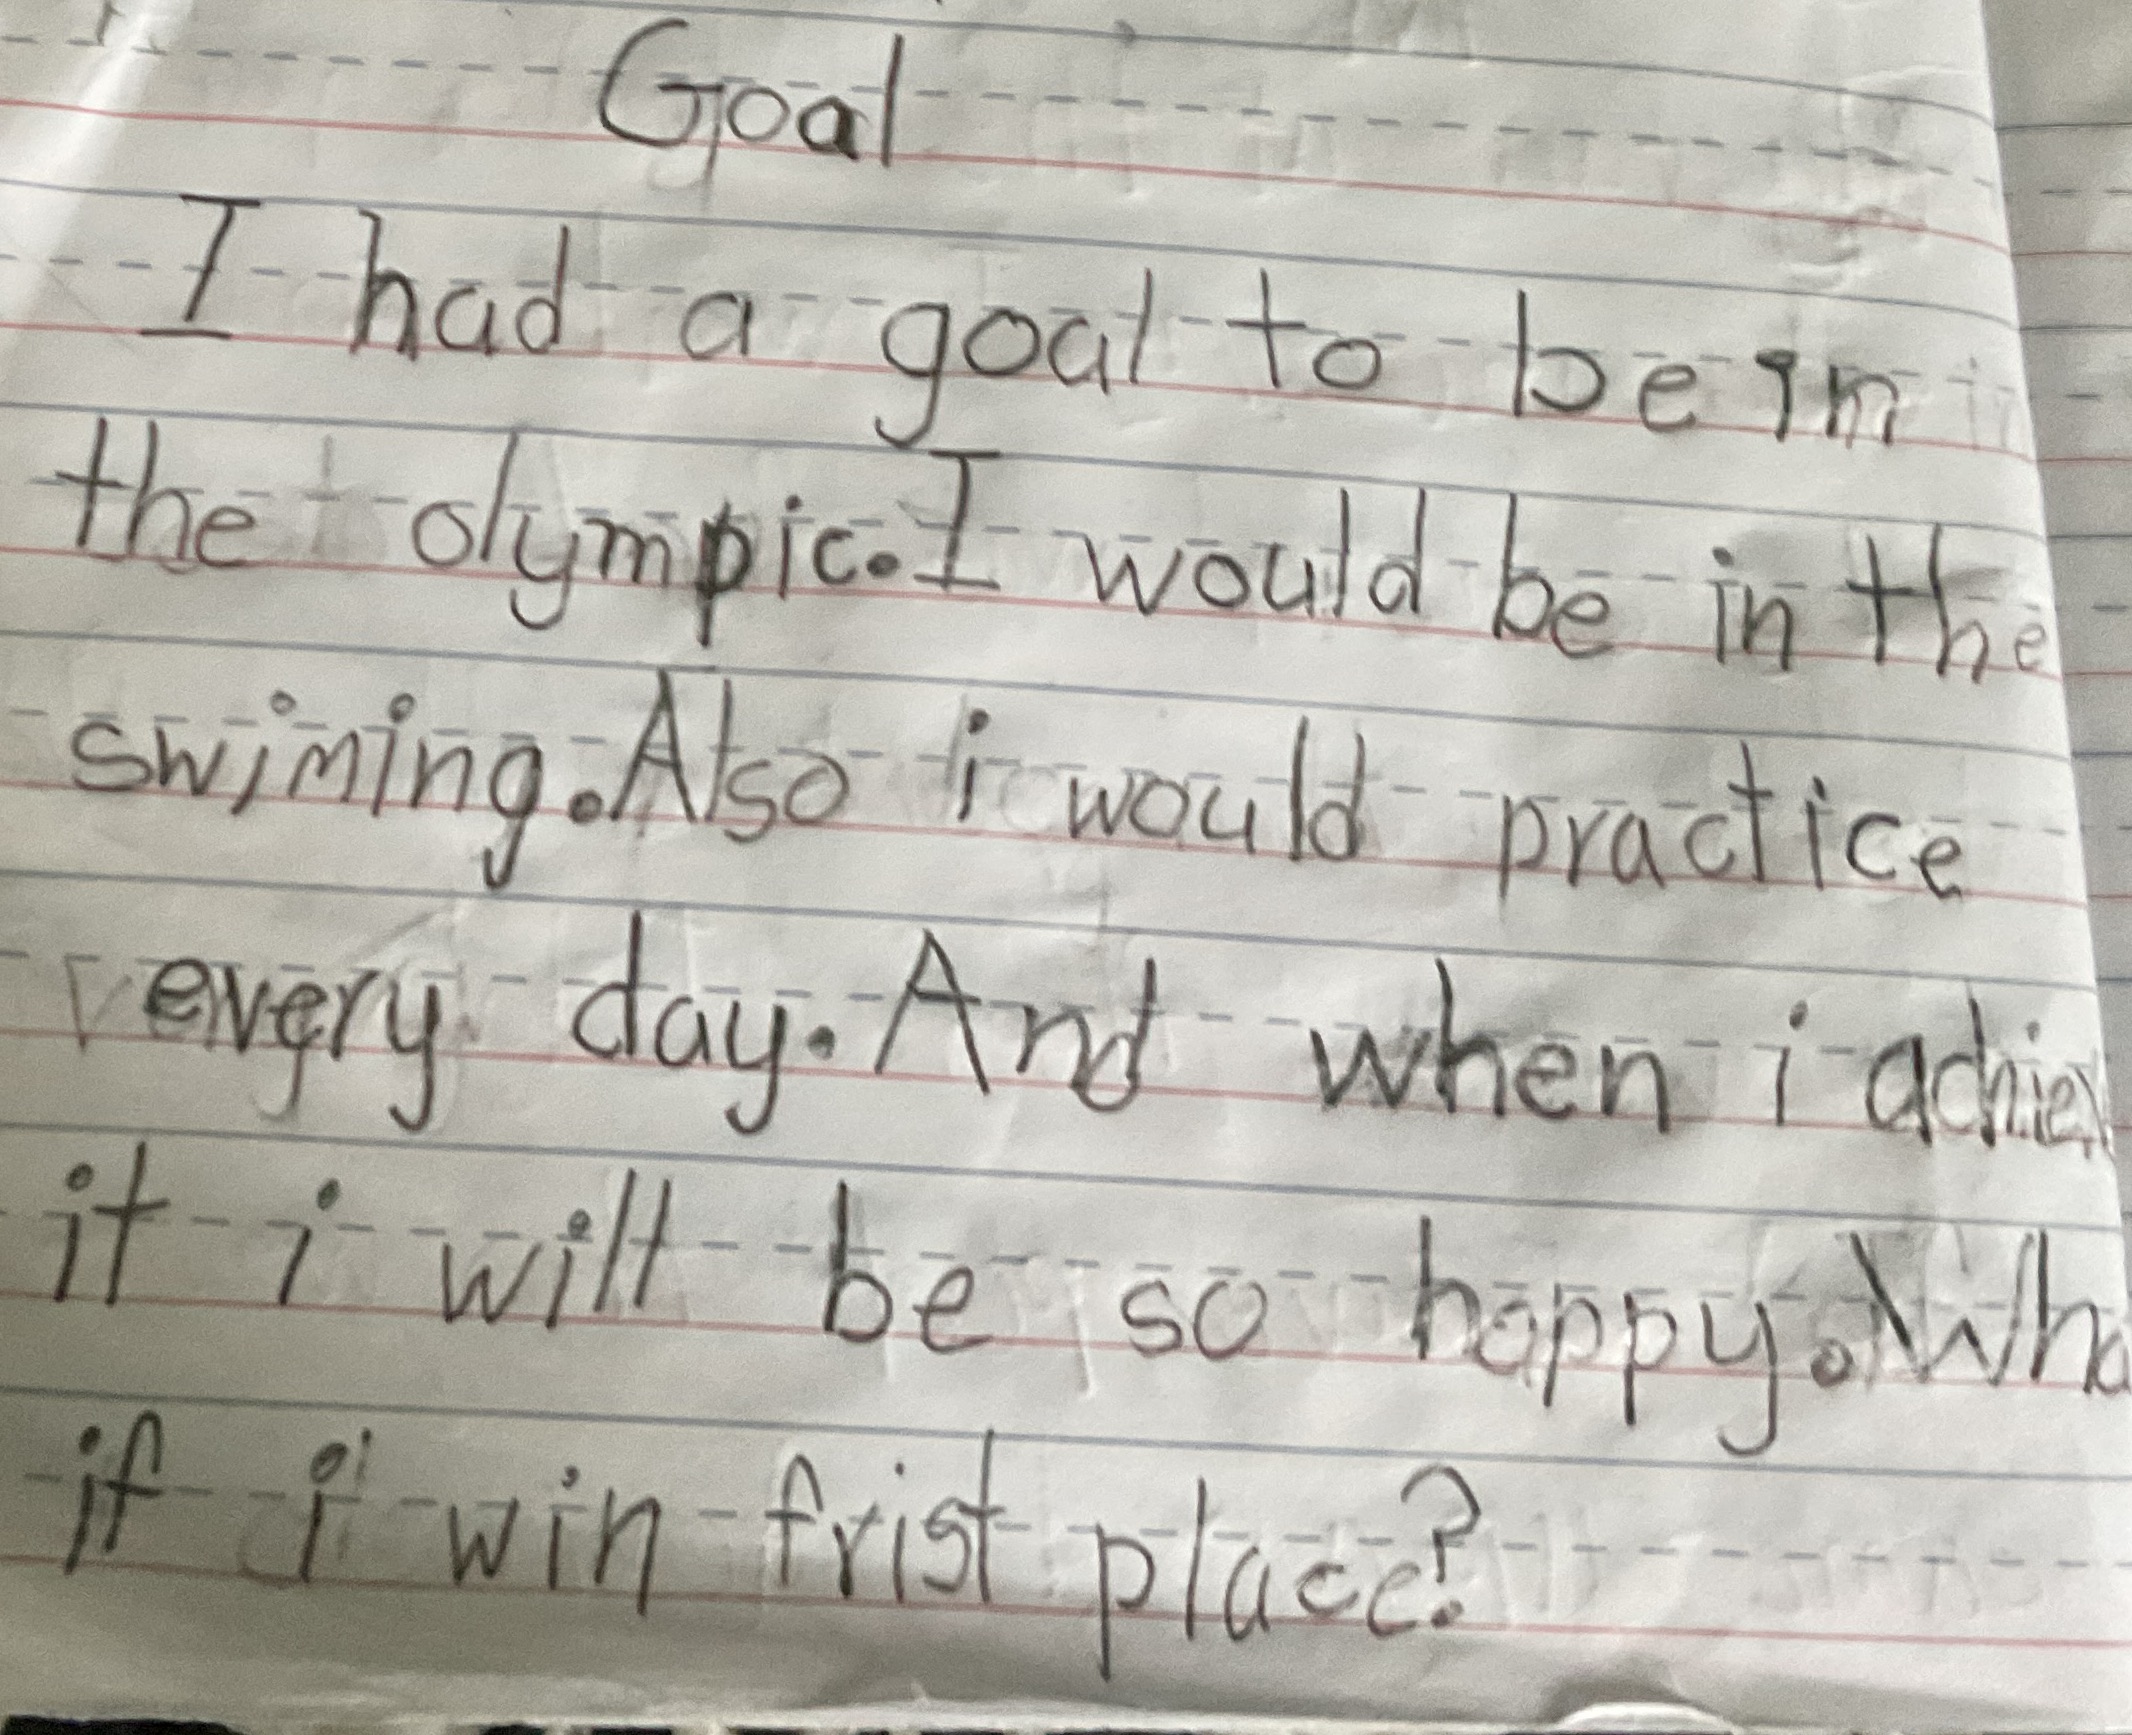 Goal
I had a goal to be in
the olympic. I would be in the
swiming. Also i would practice
every day. And when i achiev
it i will be so happy. Wha
if i win frist place?